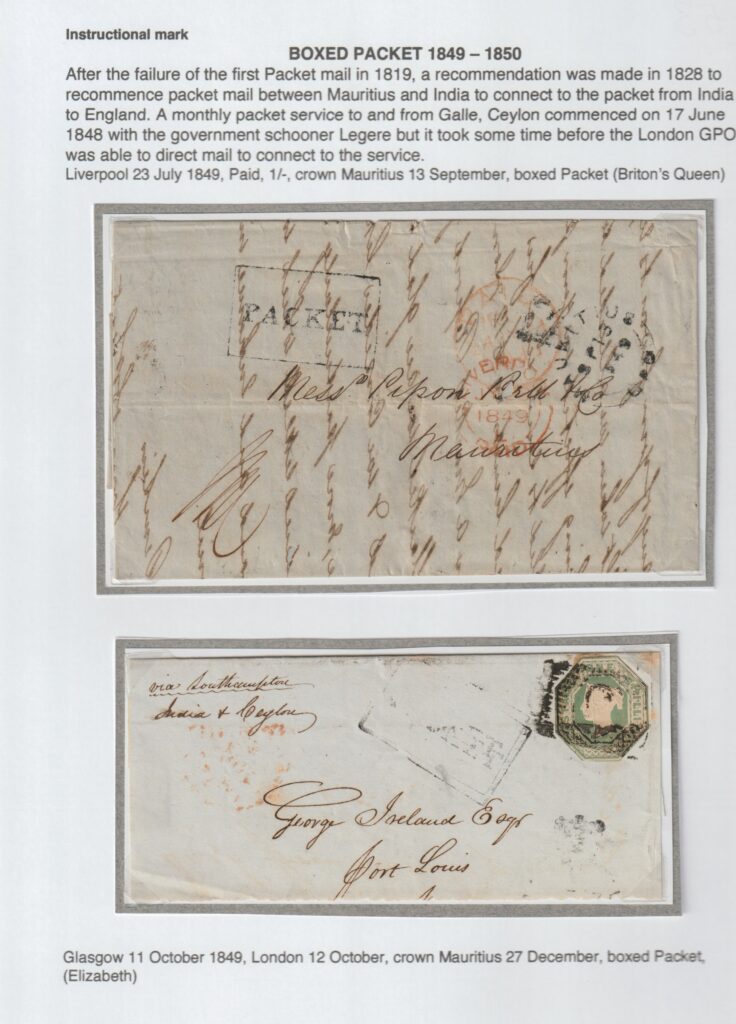 Instructional mark
BOXED PACKET 1849 – 1850
After the failure of the first Packet mail in 1819, a recommendation was made in 1828 to
recommence packet mail between Mauritius and India to connect to the packet from India
to England. A monthly packet service to and from Galle, Ceylon commenced on 17 June
1848 with the government schooner Legere but it took some time before the London GPO
was able to direct mail to connect to the service.
Liverpool 23 July 1849, Paid, 1/-, crown Mauritius 13 September, boxed Packet (Briton's Queen)
PACKET
Mess Pipon Bell & Co
1849
Mauritius
via Southampton
India & Ceylon
George Ireland Esqr
Port Louis
Glasgow 11 October 1849, London 12 October, crown Mauritius 27 December, boxed Packet,
(Elizabeth)